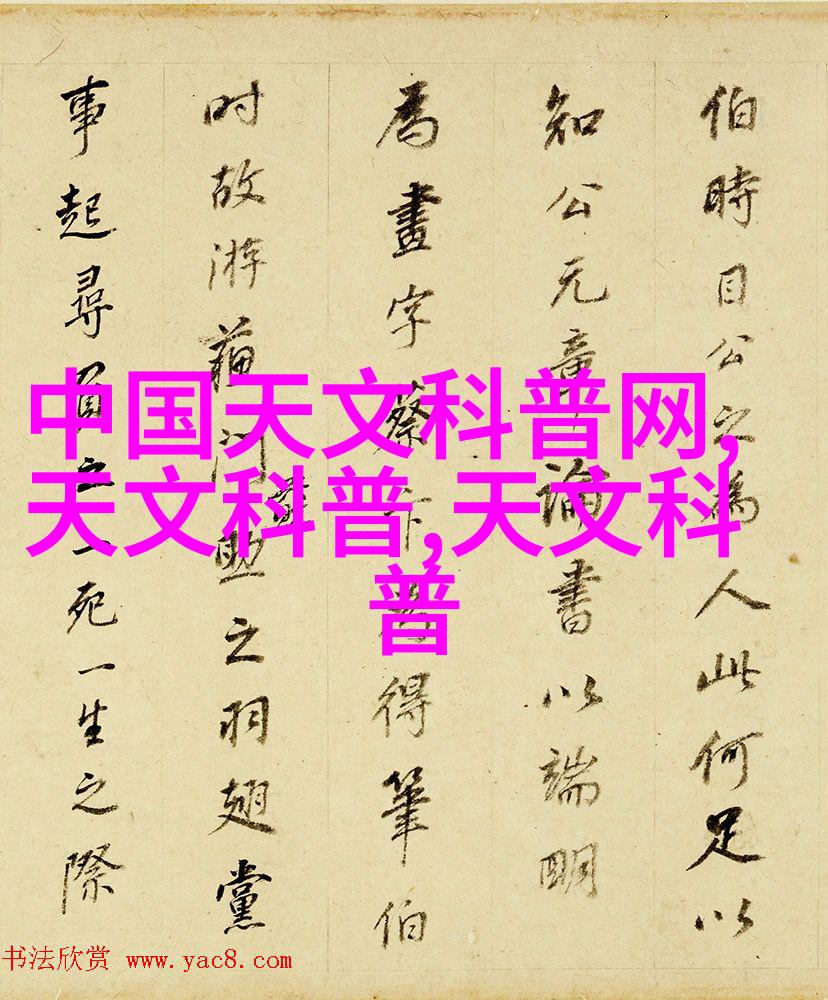 伯時目公之為人此何足以
知公元章論書以端明
為畫字蔡卞得筆伯
时故游蘓门之羽翅黨
事起尋之一死一生之際
中国天文科普网,
天文科普,天文科
普
书法欣赏 www.yac8.com